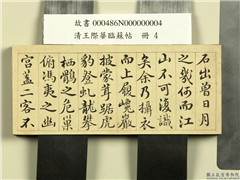 故書 000486N000000004
清王際華臨蘇帖 冊 4
石出曾日月
之幾何而江
山不可復識
矣余乃攝衣
而上履巉巖
披蒙茸踞虎
豹登虬龍攀
栖鶻之危巢
俯馮夷之幽
宮蓋二客不